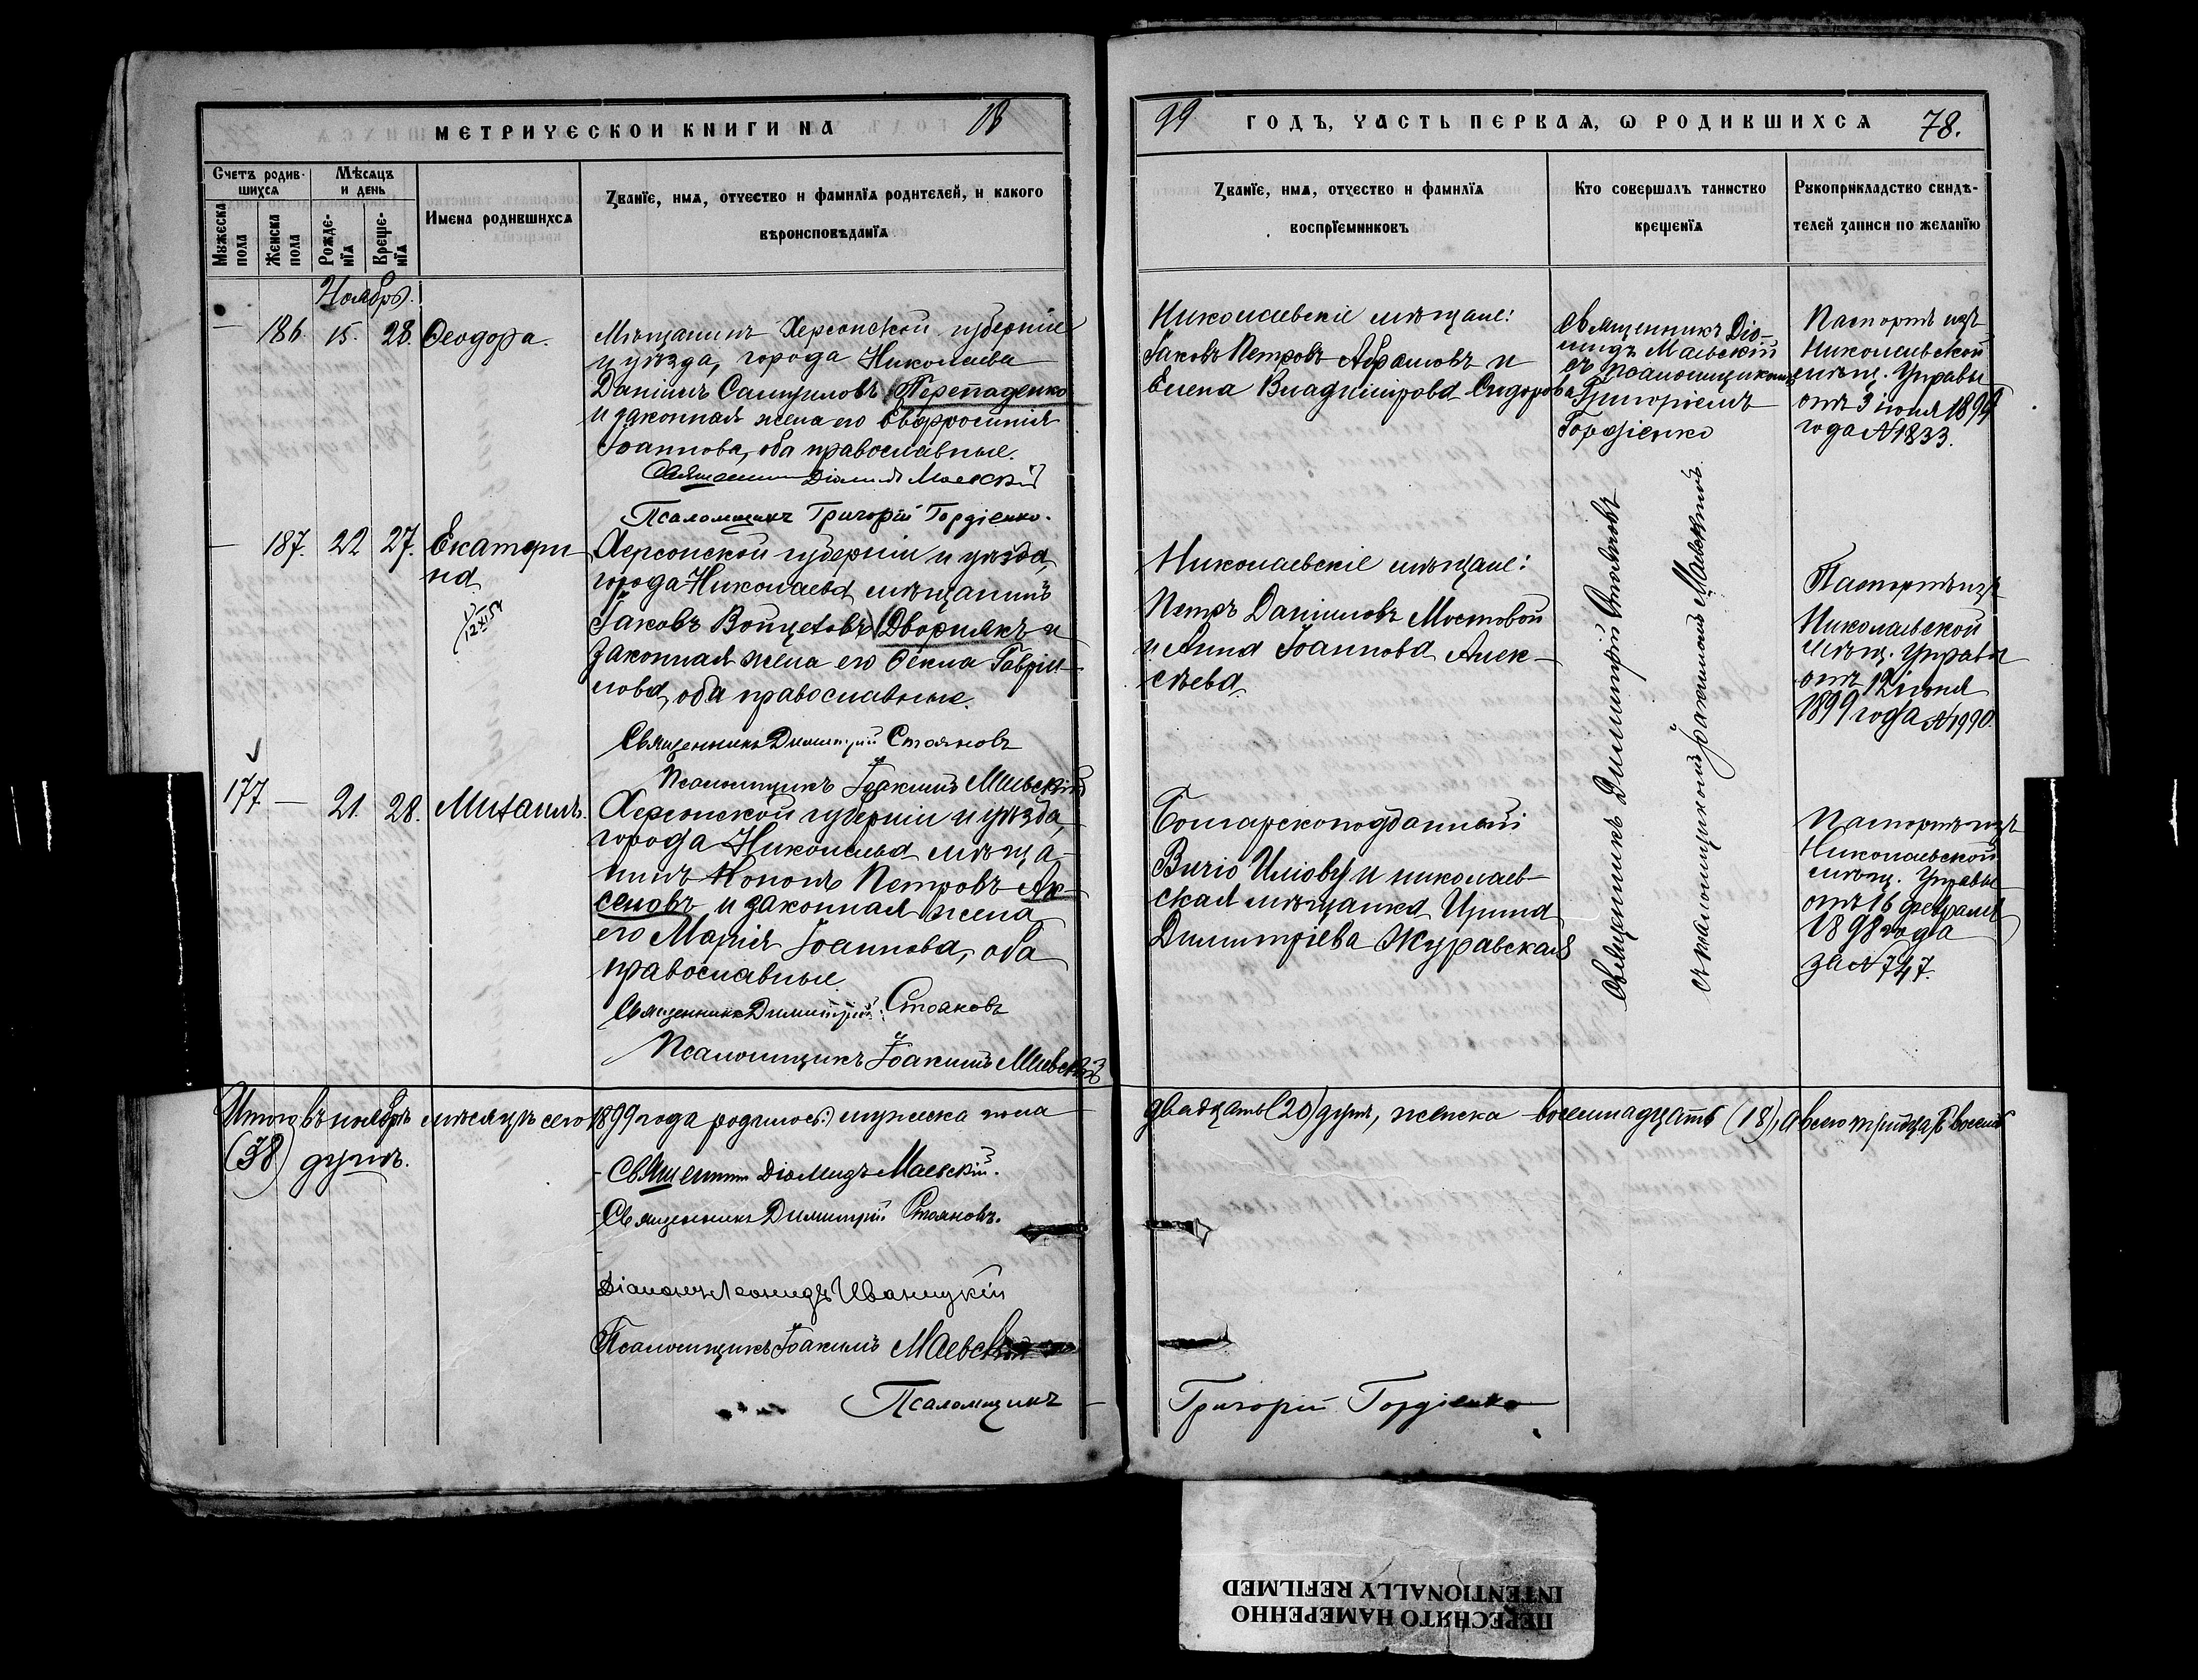 МЕТРИЧЕСКОЙ КНИГИ НА 18
Счетъ родившихся
Мѣсяцъ и день
Мужеска пола
Женска пола
Рожденїя
Крещенїя
Имена родившихся
Званїе, имя, отчество и фамилїя родителей, и какого
вѣроисповѣданїя
Ноябрь.
— 186. 15. 28. Ѳеодора.
Мѣщанинъ Херсонской губерніи
и уѣзда, города Николаева
Даніилъ Самуиловъ Перепаденко
и законная жена его Евфросинія
Іоаннова, оба православные.
Священникъ Діомидъ Маевскій
Псаломщикъ Григорій Гордіенко.
— 187. 22 27. Екатери
на
12 XI 54
Херсонской губерніи и уѣзда,
города Николаева мѣщанинъ
Іаковъ Войцеховъ Дворнякъ и
законная жена его Ѳекла Гавріи-
лова, оба православные.
Священникъ Димитрій Стояновъ
Псаломщикъ Іоакимъ Маевскій
177 — 21. 28. Михаилъ.
Херсонской губерніи и уѣзда,
города Николаева мѣща-
нинъ Кононъ Петровъ Ак-
сеновъ и законная жена
его Марія Іоаннова, оба
православные.
Священникъ Димитрій Стояновъ
Псаломщикъ Іоакимъ Маевскій
Итого въ ноябрѣ мѣсяцѣ сего 1899 года родилось: мужеска пола
(38) душъ.
Священникъ Діомидъ Маевскій.
Священникъ Димитрій Стояновъ.
Діаконъ Леонидъ Иваницкій
Псаломщикъ Іоакимъ Маевскій
Псаломщикъ
99 ГОДЪ, ЧАСТЬ ПЕРВАЯ, Ѡ РОДИВШИХСЯ 78.
Званїе, имя, отчество и фамилїя
воспрїемниковъ
Кто совершалъ таинство
крещенїя
Рукоприкладство свидѣ-
телей записи по желанїю
Николаевскіе мѣщане:
Іаковъ Петровъ Абрамовъ и
Елена Владимірова Сидорова
Священникъ Діо-
мидъ Маевскій
съ псаломщикомъ
Григоріемъ
Гордіенко
Паспортъ изъ
Николаевской
мѣщ. Управы
отъ 3 іюня 1899
года № 1833.
Николаевскіе мѣщане:
Петръ Даніиловъ Мостовой
и Анна Іоаннова Алек-
сѣева.
Священникъ Димитрій Стояновъ
съ псаломщикомъ Іоакимомъ Маевскимъ.
Паспортъ изъ
Николаевской
мѣщ. Управы
отъ 12 іюня
1899 года № 1990.
Болгарскоподданный
Вичіо Иліову и николаев-
ская мѣщанка Ирина
Димитріева Журавская
Паспортъ изъ
Николаевской
мѣщ. Управы
отъ 16 февраля
1898 года
за № 747.
двадцать (20) душъ, женска восемнадцать (18), а всего тридцать восемь
Григорій Гордіенко
ПЕРЕСНЯТО НАМЕРЕННО
INTENTIONALLY REFILMED